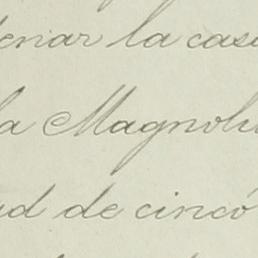 enar la casa
la Magnoli
ad de cinco